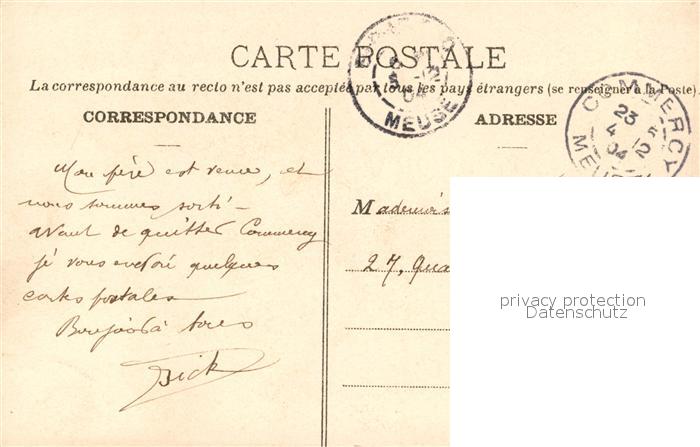 CARTE POSTALE
La correspondance au recto n'est pas acceptée par tous les pays étrangers (se renseigner à la Poste).
CORRESPONDANCE
Mon père est venu, et
nous sommes sorti –
avant de quitter Commercy
je vous envoie quelques
cartes postales
Bonjour à tous
Dick
ADRESSE
Mademois
27, Qua
MEUSE
COMMERCY
23
4
04
MEUSE
privacy protection
Datenschutz